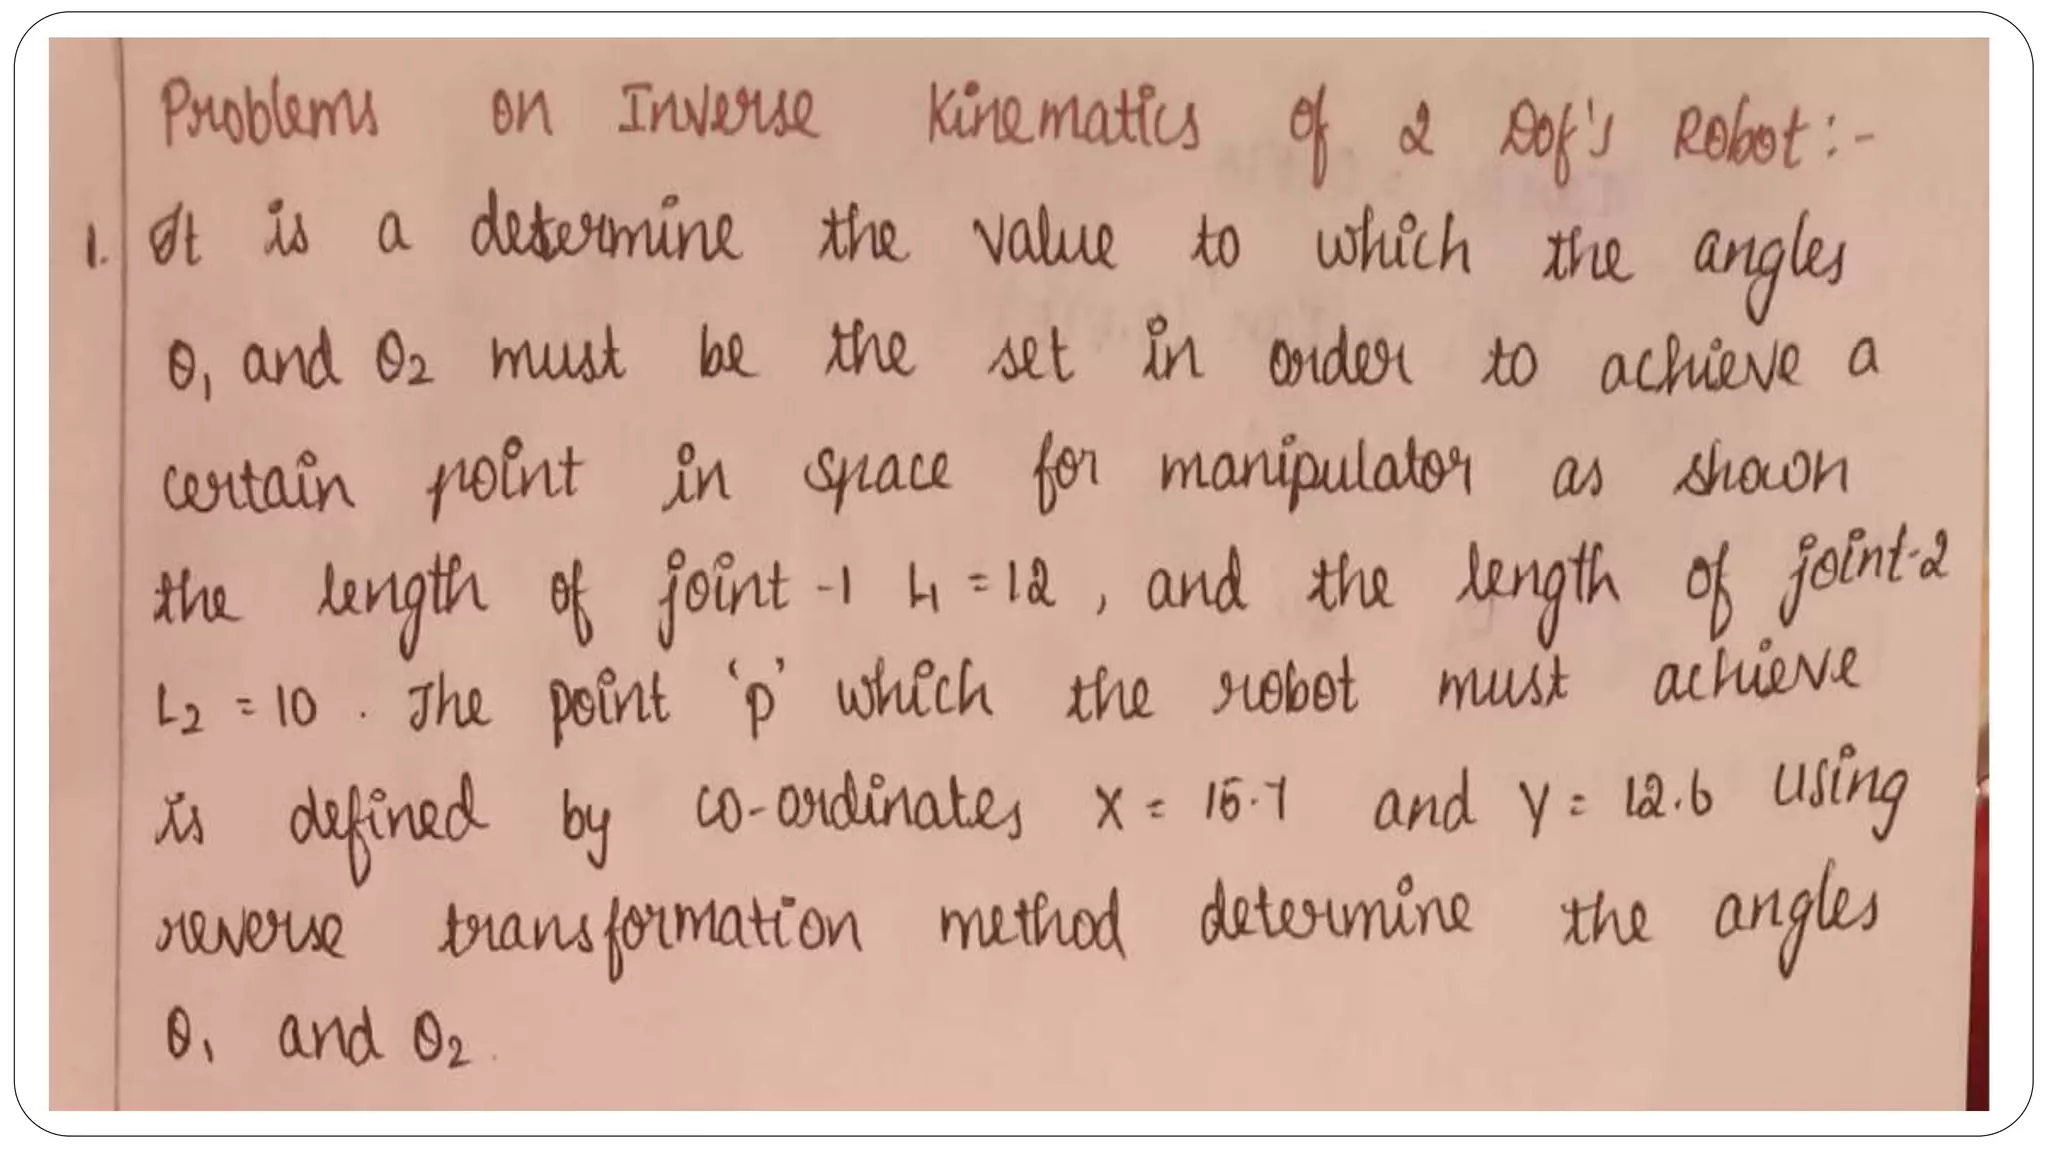 Problems on Inverse Kinematics of 2 Dof's Robot:-
1. It is a determine the value to which the angles
θ1 and θ2 must be the set in order to achieve a
certain point in space for manipulator as shown
the length of joint-1 L1 = 12, and the length of joint-2
L2 = 10. The point 'p' which the robot must achieve
is defined by co-ordinates X = 15.7 and Y = 12.6 using
reverse transformation method determine the angles
θ1 and θ2.